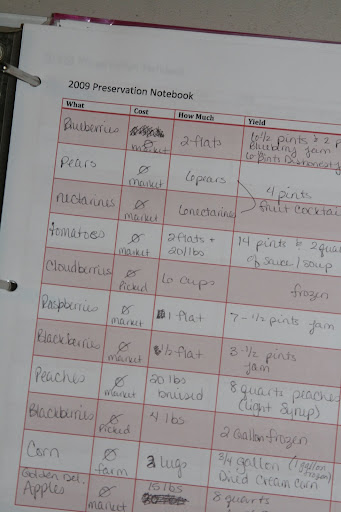 2009 Preservation Notebook
What Cost How Much Yield
Blueberries Ø market 2 flats 10 1/2 pints & 2 P
Blueberry jam
6 pints
Pears Ø market 6 pears
4 pints
fruit cocktai
Nectarines Ø market 6 nectarines
Tomatoes Ø market 2 flats + 20/lbs 14 pints & 2 quar
of sauce/soup
Cloudberries Ø Picked 6 cups frozen
Raspberries Ø market 1 flat 7 - 1/2 pints jam
Blackberries Ø market 1/2 flat 3-1/2 pints
jam
Peaches Ø market 20 lbs bruised 8 quarts peaches
(light syrup)
Blackberries Ø Picked 4 lbs 2 Gallon frozen
Corn Ø farm 2 lugs 3/4 gallon (1 gallon frozen)
Dried cream corn
Golden Del. Apples Ø market 15 lbs 8 quarts